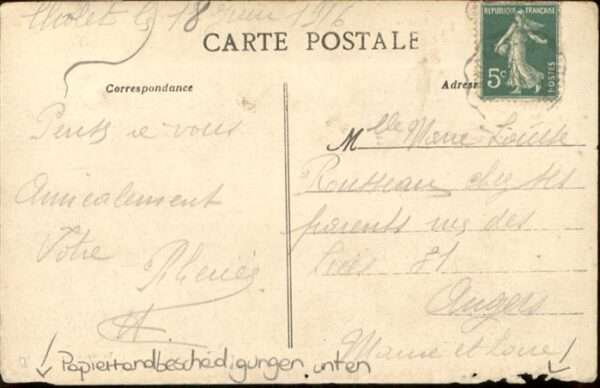 Cholet le 18 juin 1916
CARTE POSTALE
RÉPUBLIQUE FRANÇAISE
5c
POSTES
Correspondance
Adresse
à vous
Amicalement
Votre
Mlle Marie Louise
Rousseau chez ses
parents rue des
21
Angers
Maine et Loire
! Papierrandbeschädigungen unten !